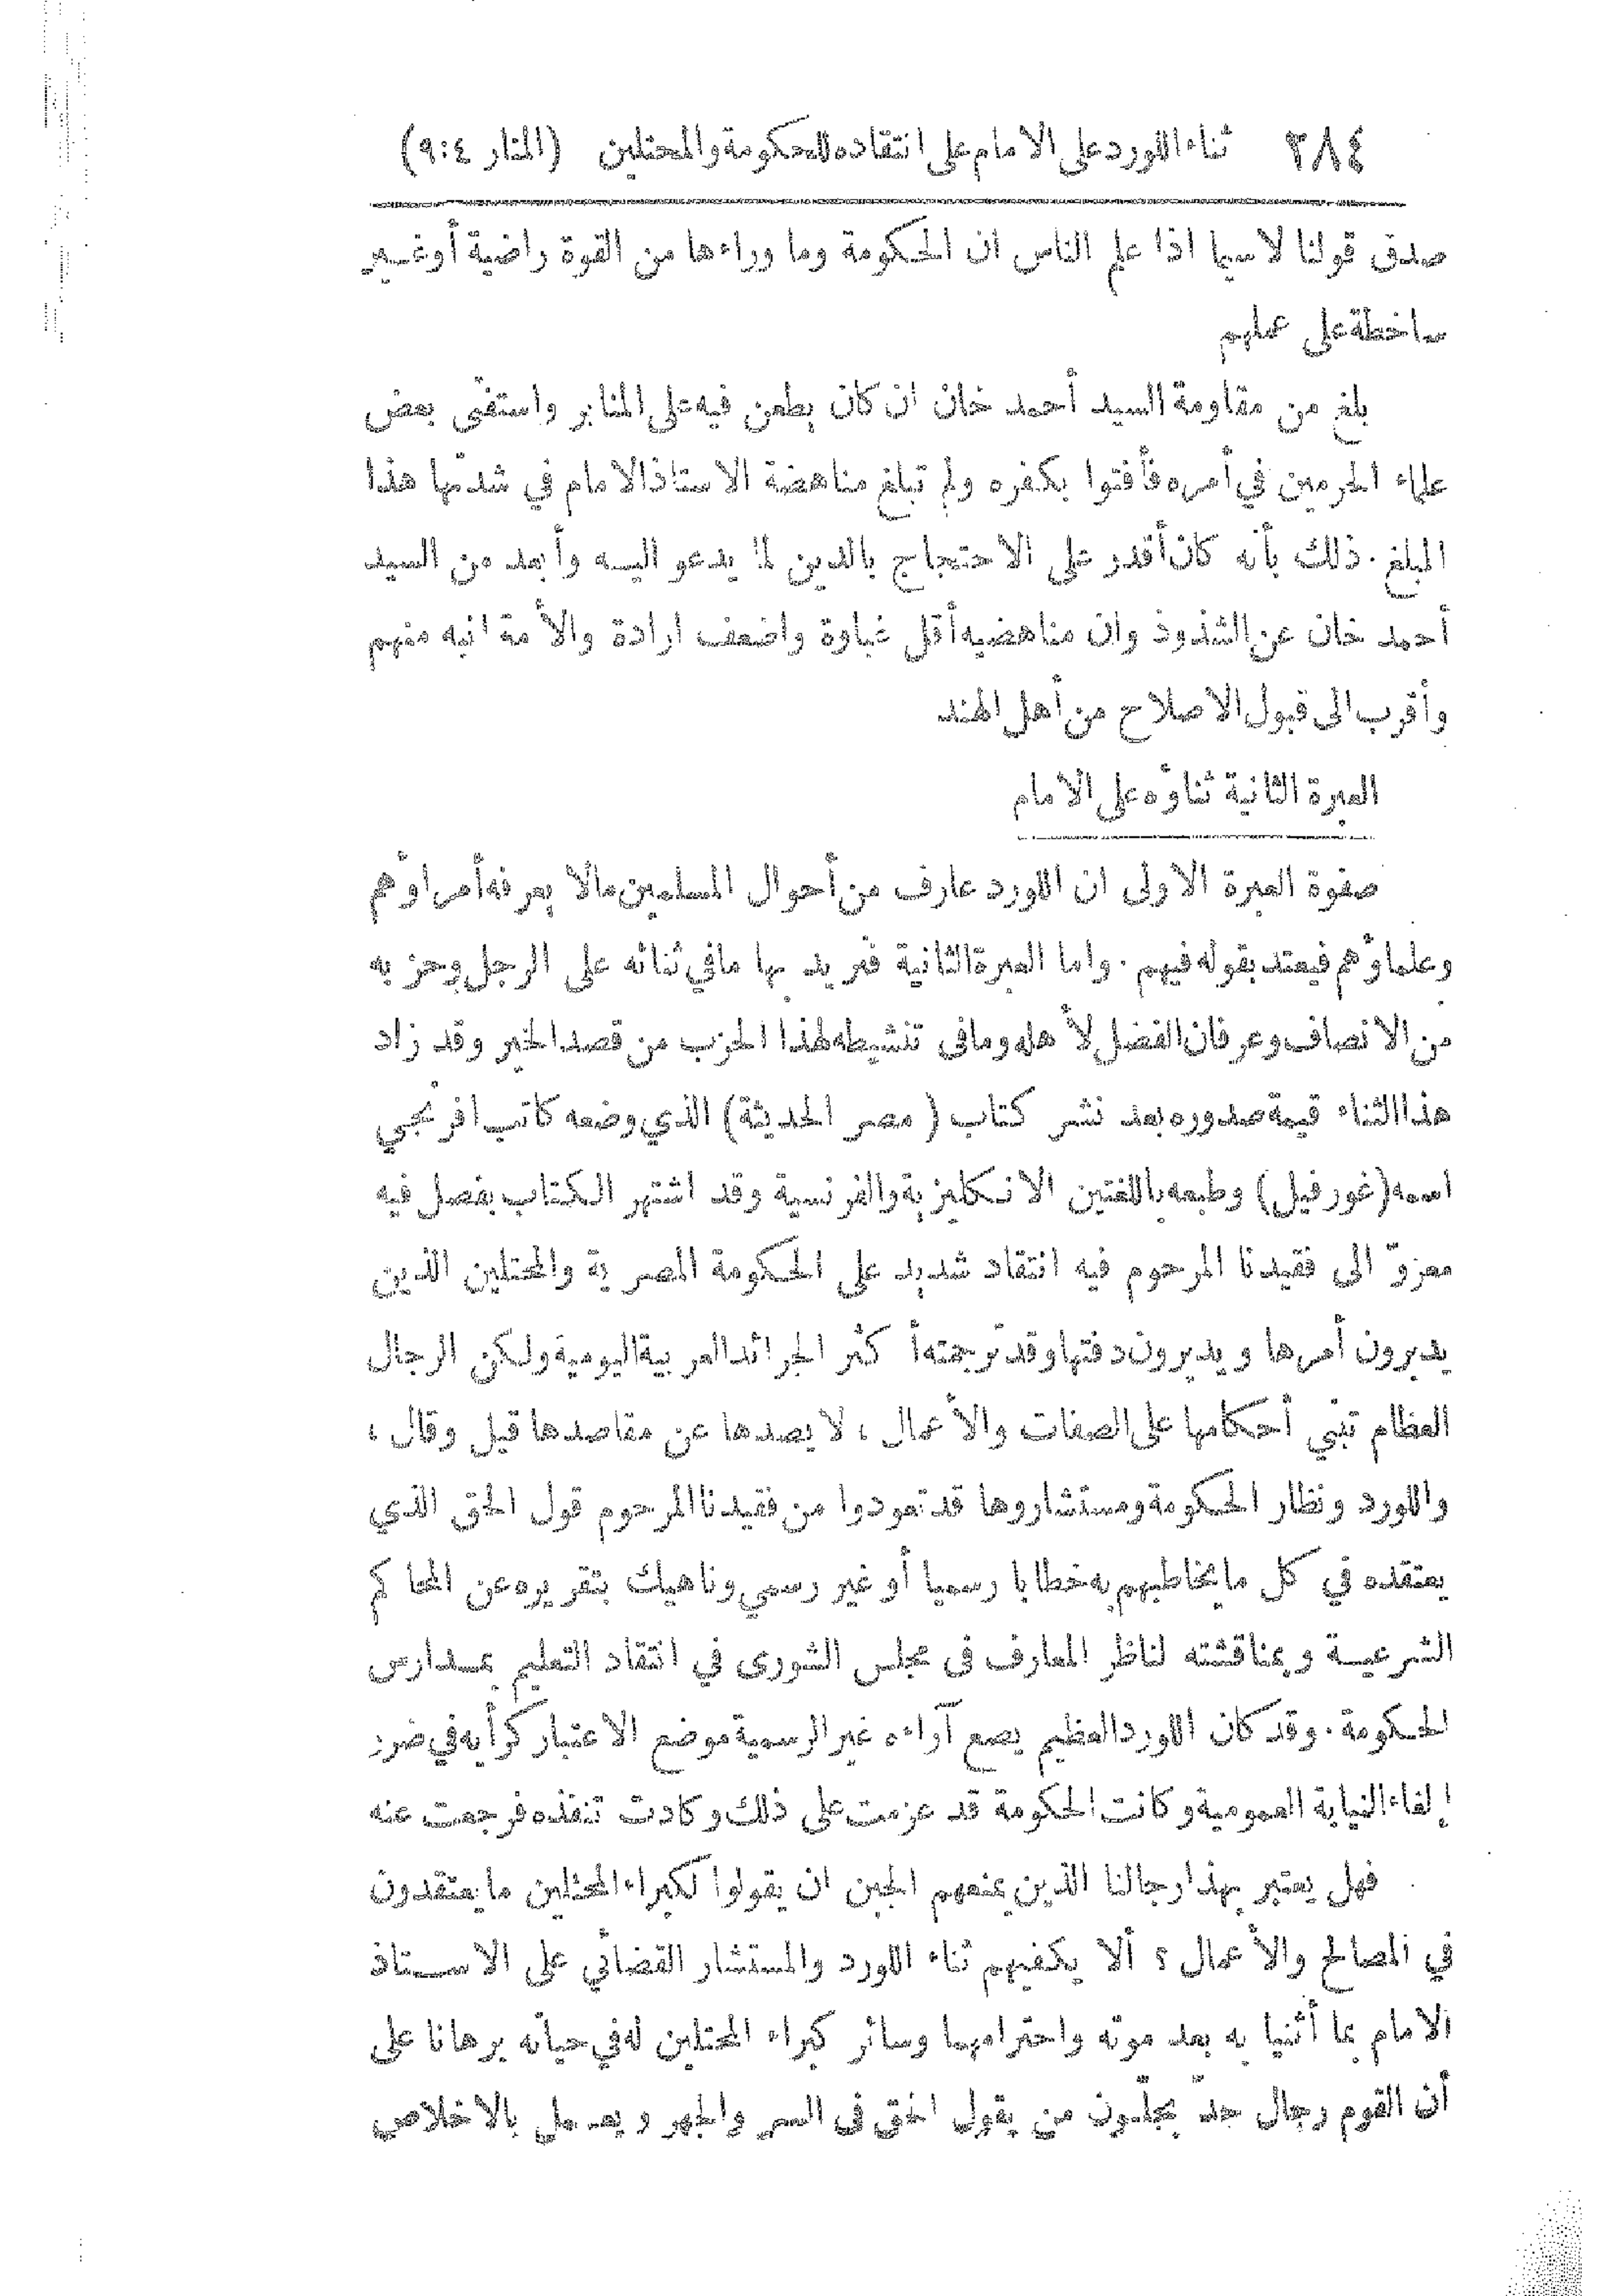 ٢٨٤ ثناء اللورد على الامام على انتقاده للحكومة والمحتلين (المنار ٤:٩)
صدق قولنا لا سيما اذا علم الناس ان الحكومة وما وراءها من القوة راضية أوغير
ساخطة على عملهم
بلغ من مقاومة السيد أحمد خان ان كان يطعن فيه على المنابر واستفتى بعض
علماء الحرمين في أمره فأفتوا بكفره ولم تبلغ مناهضة الاستاذ الامام في شدتها هذا
المبلغ . ذلك بأنه كان أقدر على الاحتجاج بالدين لما يدعو اليه وأبعد من السيد
أحمد خان عن الشذوذ وان مناهضيه أقل غباوة واضعف ارادة والأمة انبه منهم
وأقرب الى قبول الاصلاح من أهل الهند
العبرة الثانية ثناؤه على الامام
صفوة العبرة الاولى ان اللورد عارف من أحوال المسلمين مالا يعرفه أمراؤهم
وعلماؤهم فيعتد بقوله فيهم . واما العبرة الثانية فنريد بها مافي ثنائه على الرجل وحزبه
من الانصاف وعرفان الفضل لأهله ومافى تنشيطه لهذا الحزب من قصد الخير وقد زاد
هذا الثناء قيمة صدوره بعد نشر كتاب ( مصر الحديثة) الذي وضعه كاتب افرنجي
اسمه (غورفيل) وطبعه باللغتين الانكليزية والفرنسية وقد اشتهر الكتاب بفصل فيه
معزوّ الى فقيدنا المرحوم فيه انتقاد شديد على الحكومة المصرية والمحتلين الذين
يديرون أمرها ويديرون دفتها وقد ترجمته أكثر الجرائد العربية اليومية ولكن الرجال
العظام تبني أحكامها على الصفات والأعمال ، لا يصدها عن مقاصدها قيل وقال ،
واللورد ونظار الحكومة ومستشاروها قد تعودوا من فقيدنا المرحوم قول الحق الذي
يعتقده في كل مايخاطبهم به خطابا رسميا أو غير رسمي وناهيك بتقريره عن المحاكم
الشرعية وبمناقشته لناظر المعارف فى مجلس الشورى في انتقاد التعليم بمدارس
الحكومة . وقد كان اللورد العظيم يضع آراءه غير الرسمية موضع الاعتبار كرأيه في ضرر
إلغاء النيابة العمومية وكانت الحكومة قد عزمت على ذلك وكادت تنفذه فرجعت عنه
فهل يعتبر بهذا رجالنا الذين يمنعهم الجبن ان يقولوا لكبراء المحتلين ما يعتقدون
في المصالح والأعمال ؟ ألا يكفيهم ثناء اللورد والمستشار القضائي على الاستاذ
الامام بما أثنيا به بعد موته واحترامهما وسائر كبراء المحتلين له في حياته برهانا على
أن القوم رجال جدّ يجلّون من يقول الحق فى السر والجهر ويعمل بالاخلاص